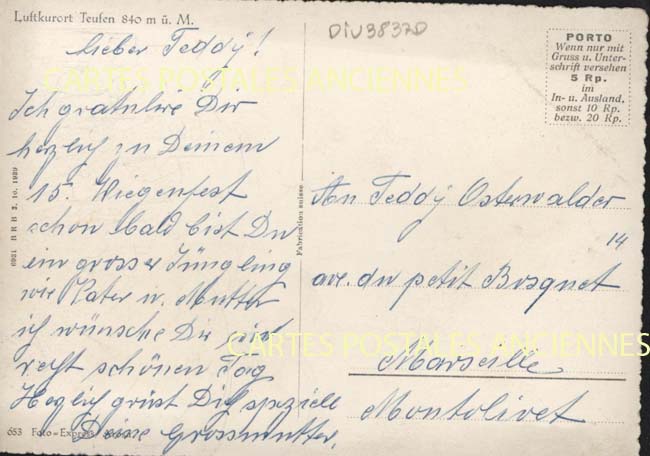 Luftkurort Teufen 840 m ü. M.
DIV3837D
Lieber Teddy!
Ich gratuliere Dir
herzlich zu Deinem
15. Wiegenfest
schon bald bist Du
ein grosser Jüngling
wie Vater u. Mutter
ich wünsche Dir
recht schönen Tag
Herzlich grüst Dich speziell
Deine Grossmutter.
6921 BRB 2. 10. 1939
Fabrication suisse
653 Foto=Express
PORTO
Wenn nur mit
Gruss u. Unter-
schrift versehen
5 Rp.
im
In- u. Ausland,
sonst 10 Rp.
bezw. 20 Rp.
An Teddy Osterwalder
14
ave. du petit Bosquet
Marseille
Montolivet
CARTES POSTALES ANCIENNES
CARTES POSTALES ANCIENNES